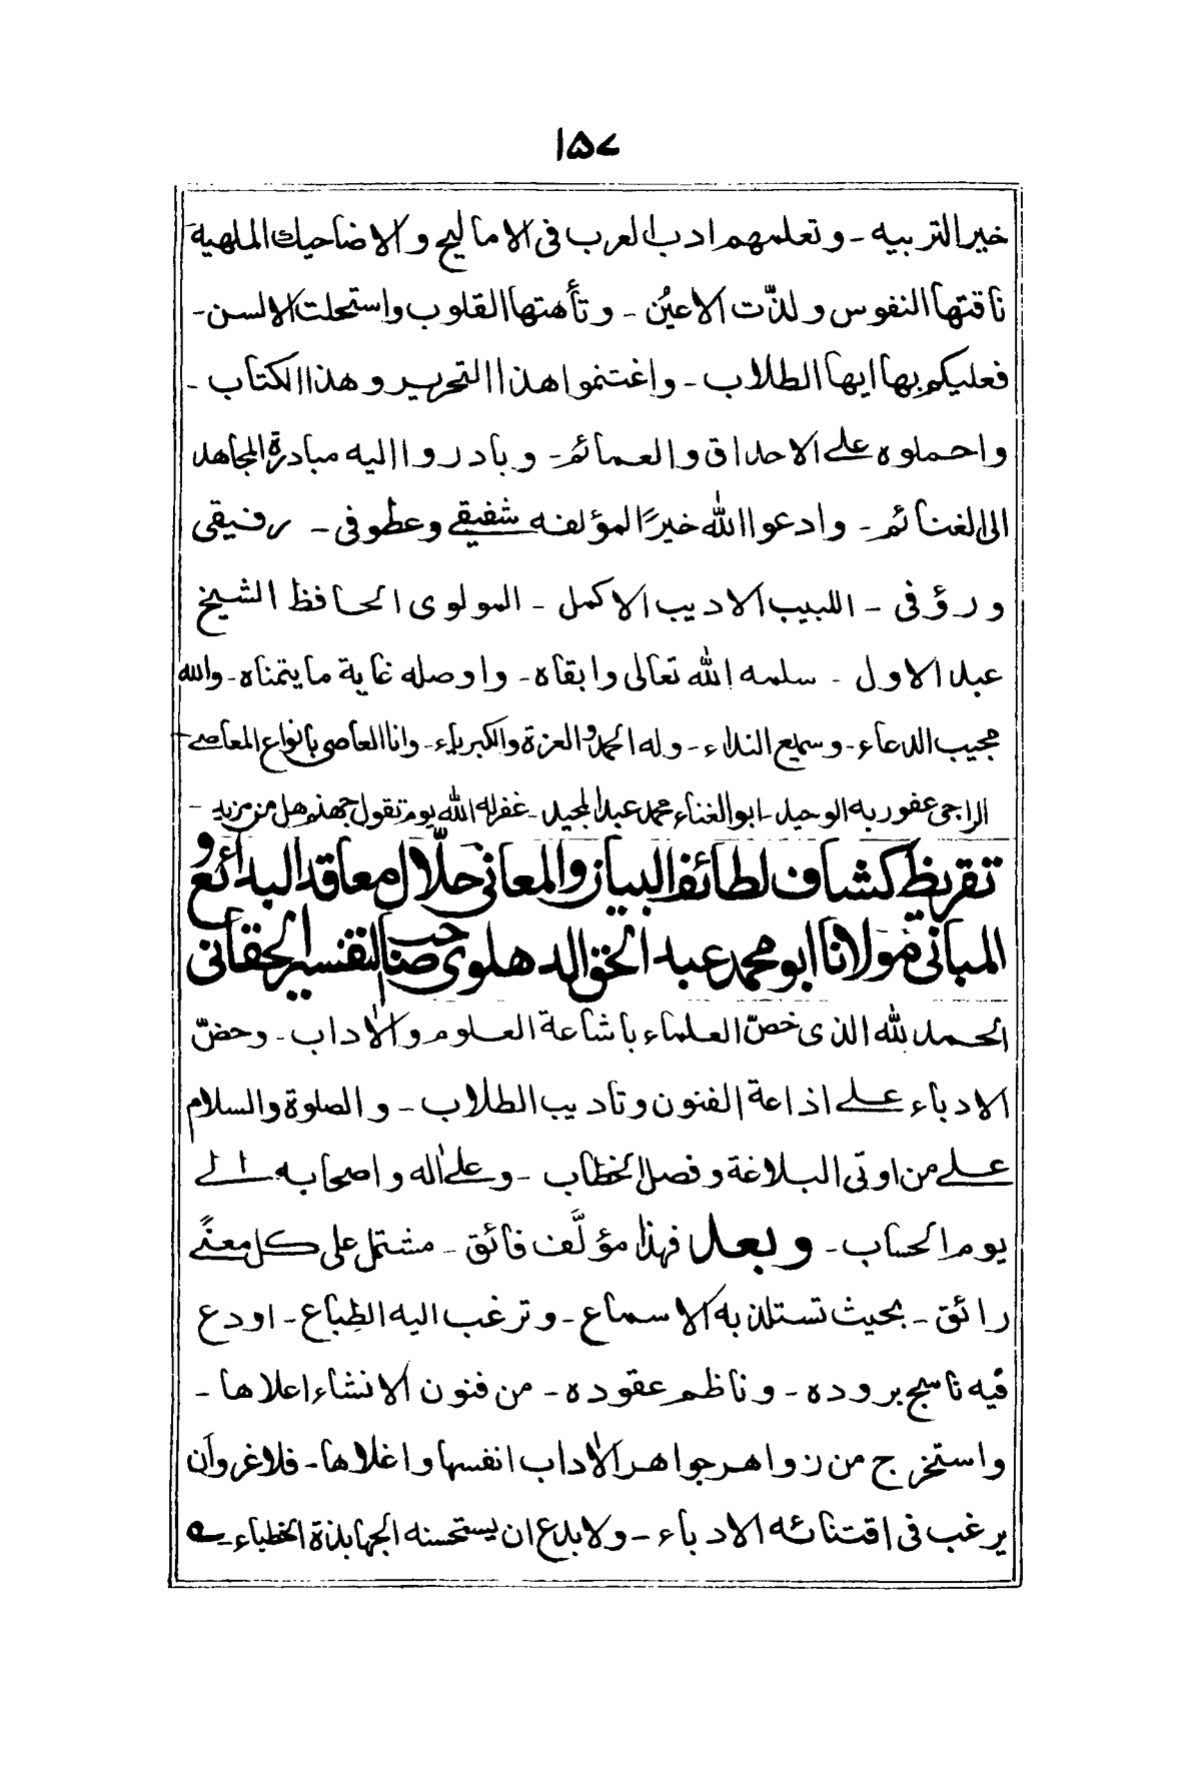 ١٥٧
خير التربيه - وتعلمهم ادب العرب فى الاماليح والاضاحيك الملهية
ناقتها النفوس ولذّت الاعيُن - وتأهتها القلوب واستحلت الالسن -
فعليكم بها ايها الطلاب - واغتنموا هذا التحرير وهذا الكتاب -
واحملوه على الاحداق والعمائم - وبادروا اليه مبادرة المجاهد
الى الغنائم - وادعوا الله خيرًا لمؤلفه شفيقى وعطوفى - رفيقى
ورؤفى - اللبيب الاديب الاكمل - المولوى الحافظ الشيخ
عبد الاول - سلمه الله تعالى وابقاه - واوصله غاية ما يتمناه - والله
مجيب الدعاء - وسميع النداء - وله الحمد والعزة والكبرياء - وانا العاصى بانواع المعاصى
الراجى عفو ربه الوحيد - ابو الغناء محمد عبد المجيد - غفر له الله يوم تقول جهنم هل من مزيد -
تقريظ كشاف لطائف البيان والمعانى حلّال معاقد البدائع و
المبانى مولانا ابو محمد عبد الحق الدهلوى صاحب التفسير الحقانى
الحمد لله الذى خصّ العلماء باشاعة العلوم والاٰداب - وحضّ
الادباء على اذاعة الفنون وتاديب الطلاب - والصلوة والسلام
على من اوتى البلاغة وفصل الخطاب - وعلىٰ اٰله واصحابه الى
يوم الحساب - وبعد فهذا مؤلَّف فائق - مشتمل على كل معنًى
رائق - بحيث تستلذ به الاسماع - وترغب اليه الطِباع - اودع
فيه ناسج بروده - وناظم عقوده - من فنون الانشاء اعلاها -
واستخرج من زواهر جواهر الاٰداب انفسها واغلاها - فلا غرو ان
يرغب فى اقتنائه الادباء - ولا بدع ان يستحسنه الجهابذة الخطباء -